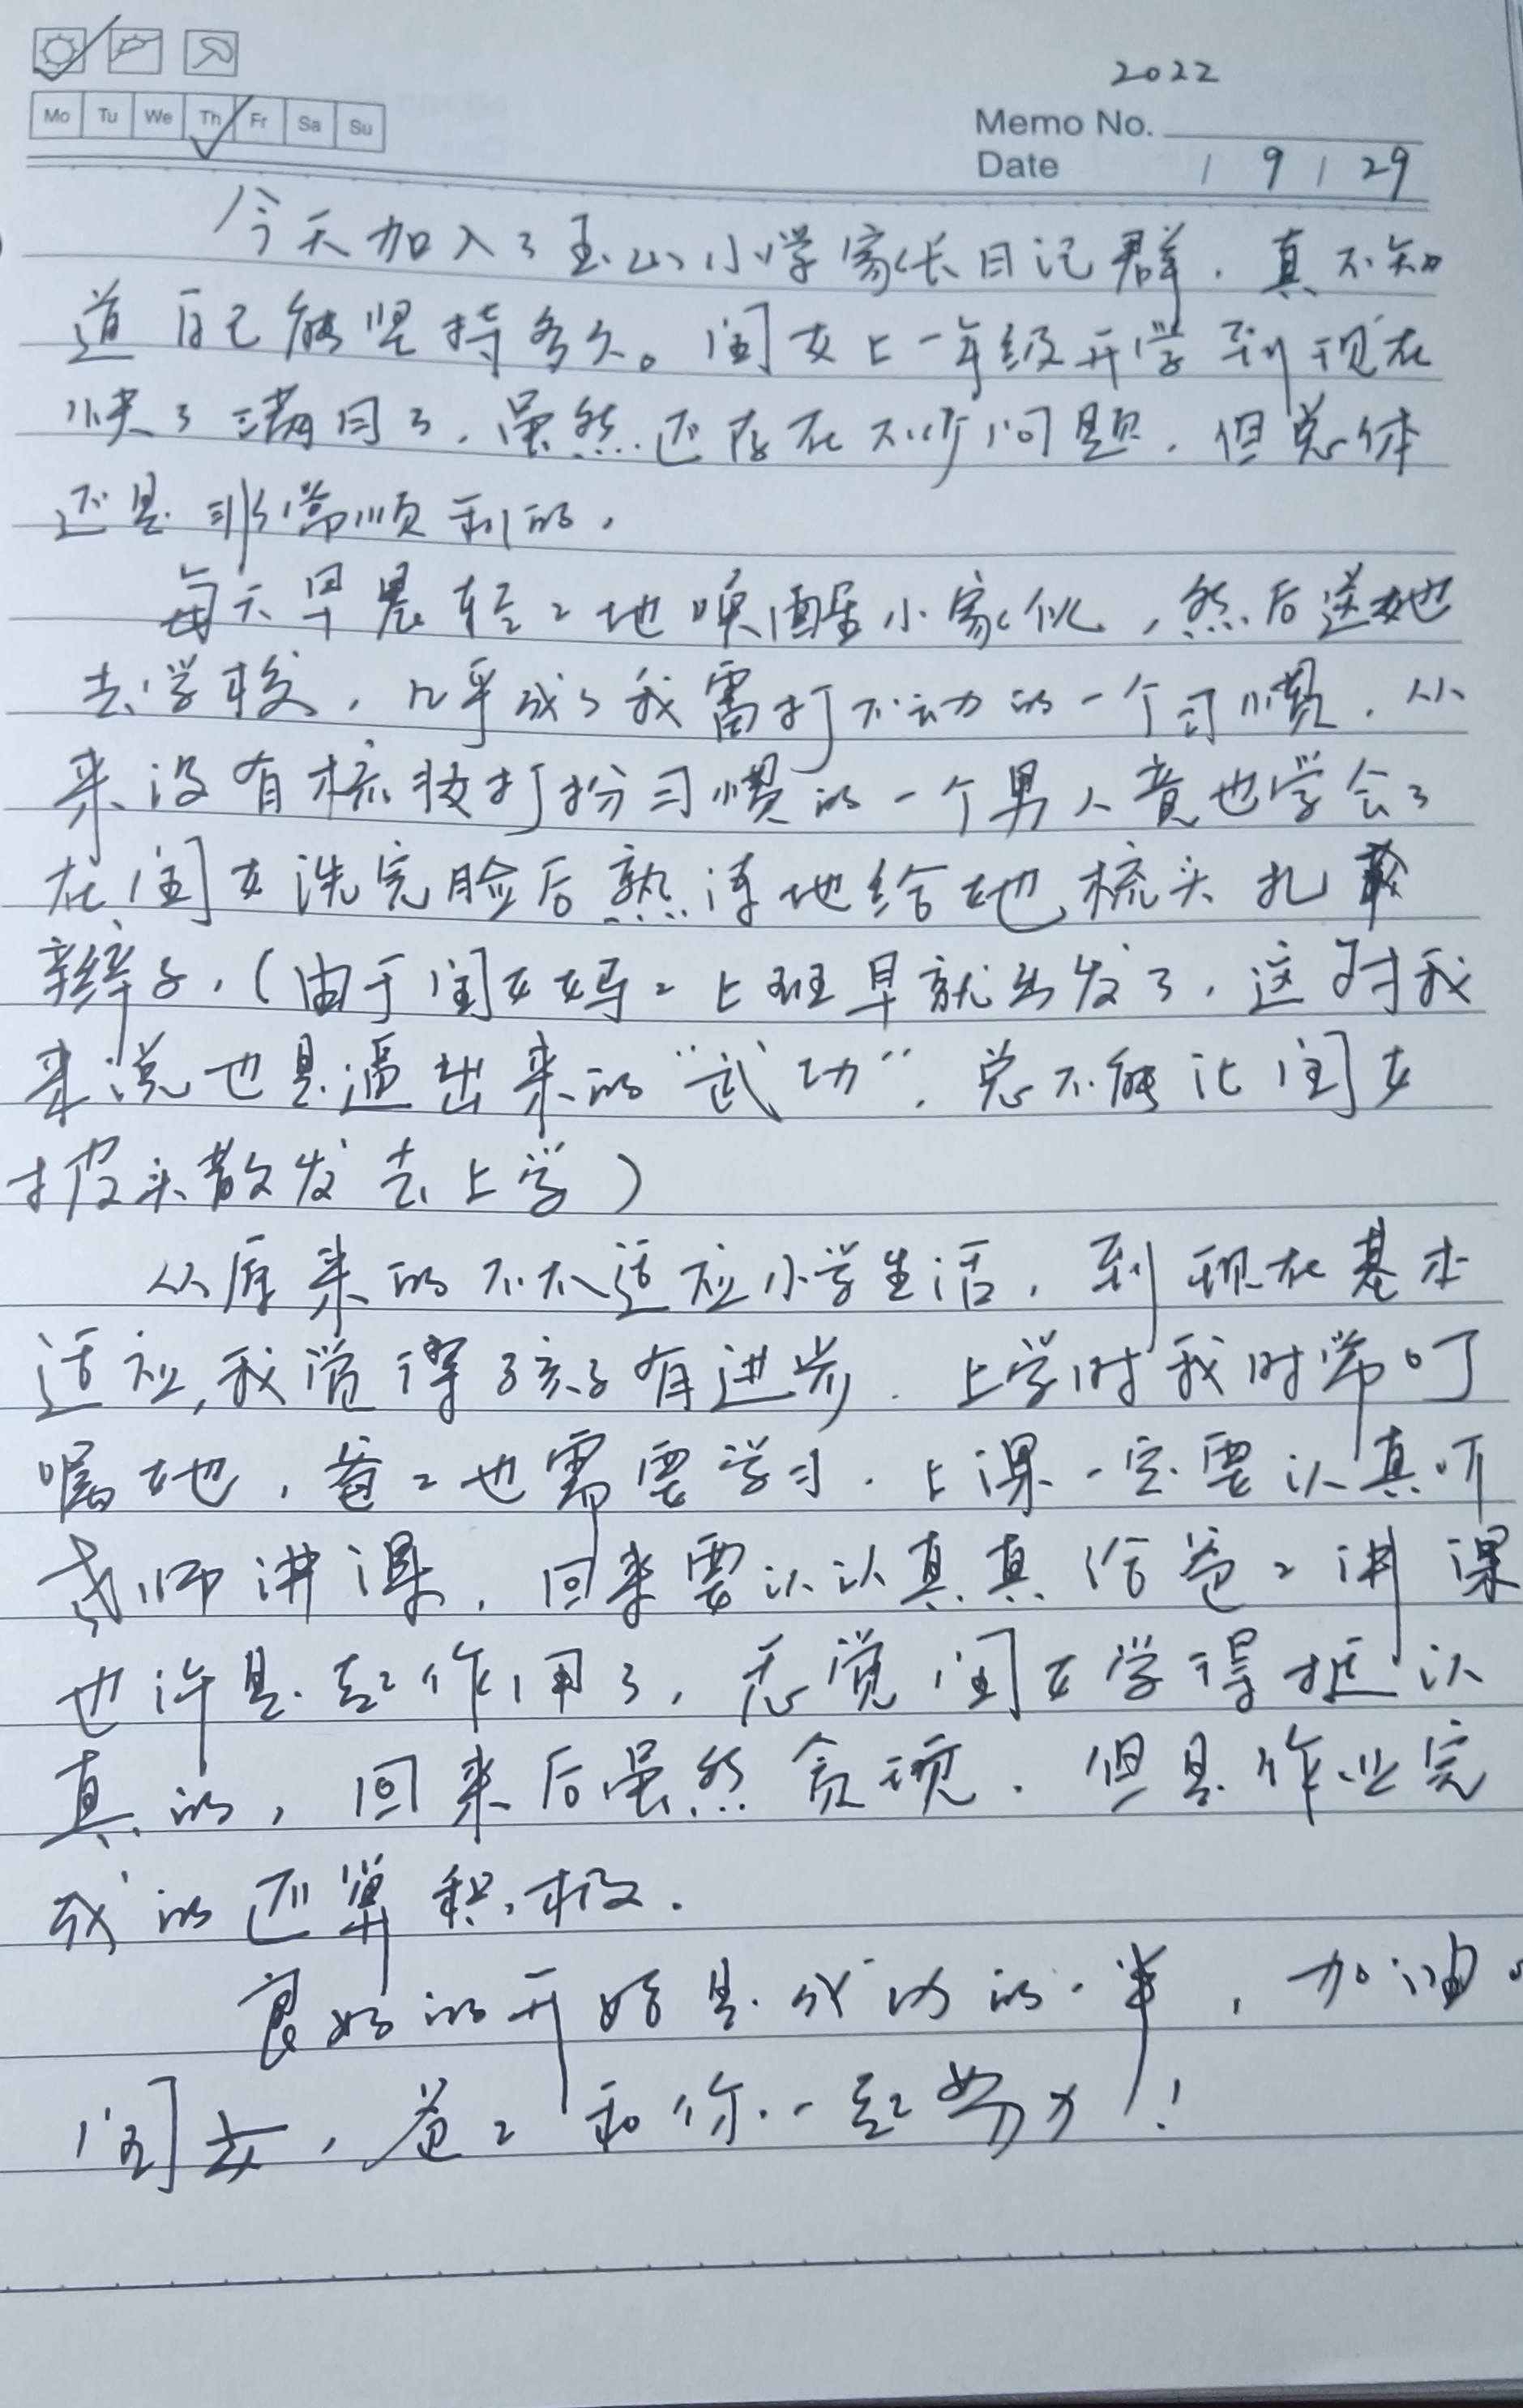 2022
Mo Tu We Th Fr Sa Su
Memo No.
Date / 9 / 29
今天加入了玉山小学家长日记群，真不知
道自己能坚持多久。闺女上一年级开学到现在
快了满月了，虽然还存在不少问题，但总体
还是非常顺利的，
每天早晨轻轻地唤醒小家伙，然后送她
去学校，几乎成了我雷打不动的一个习惯，从
来没有梳妆打扮习惯的一个男人竟也学会了
在闺女洗完脸后熟练地给她梳头扎
辫子，（由于闺女妈妈上班早就出发了，这对我
来说也是逼出来的“武功”，总不能让闺女
披头散发去上学）
从原来的不太适应小学生活，到现在基本
适应，我觉得孩子有进步．上学时我时常叮
嘱她，爸爸也需要学习．上课一定要认真听
老师讲课，回来要认认真真给爸爸讲课
也许是起作用了，感觉闺女学得挺认
真的，回来后虽然贪玩．但是作业完
成的还算积极．
良好的开始是成功的一半，加油。
闺女，爸爸和你一起努力！